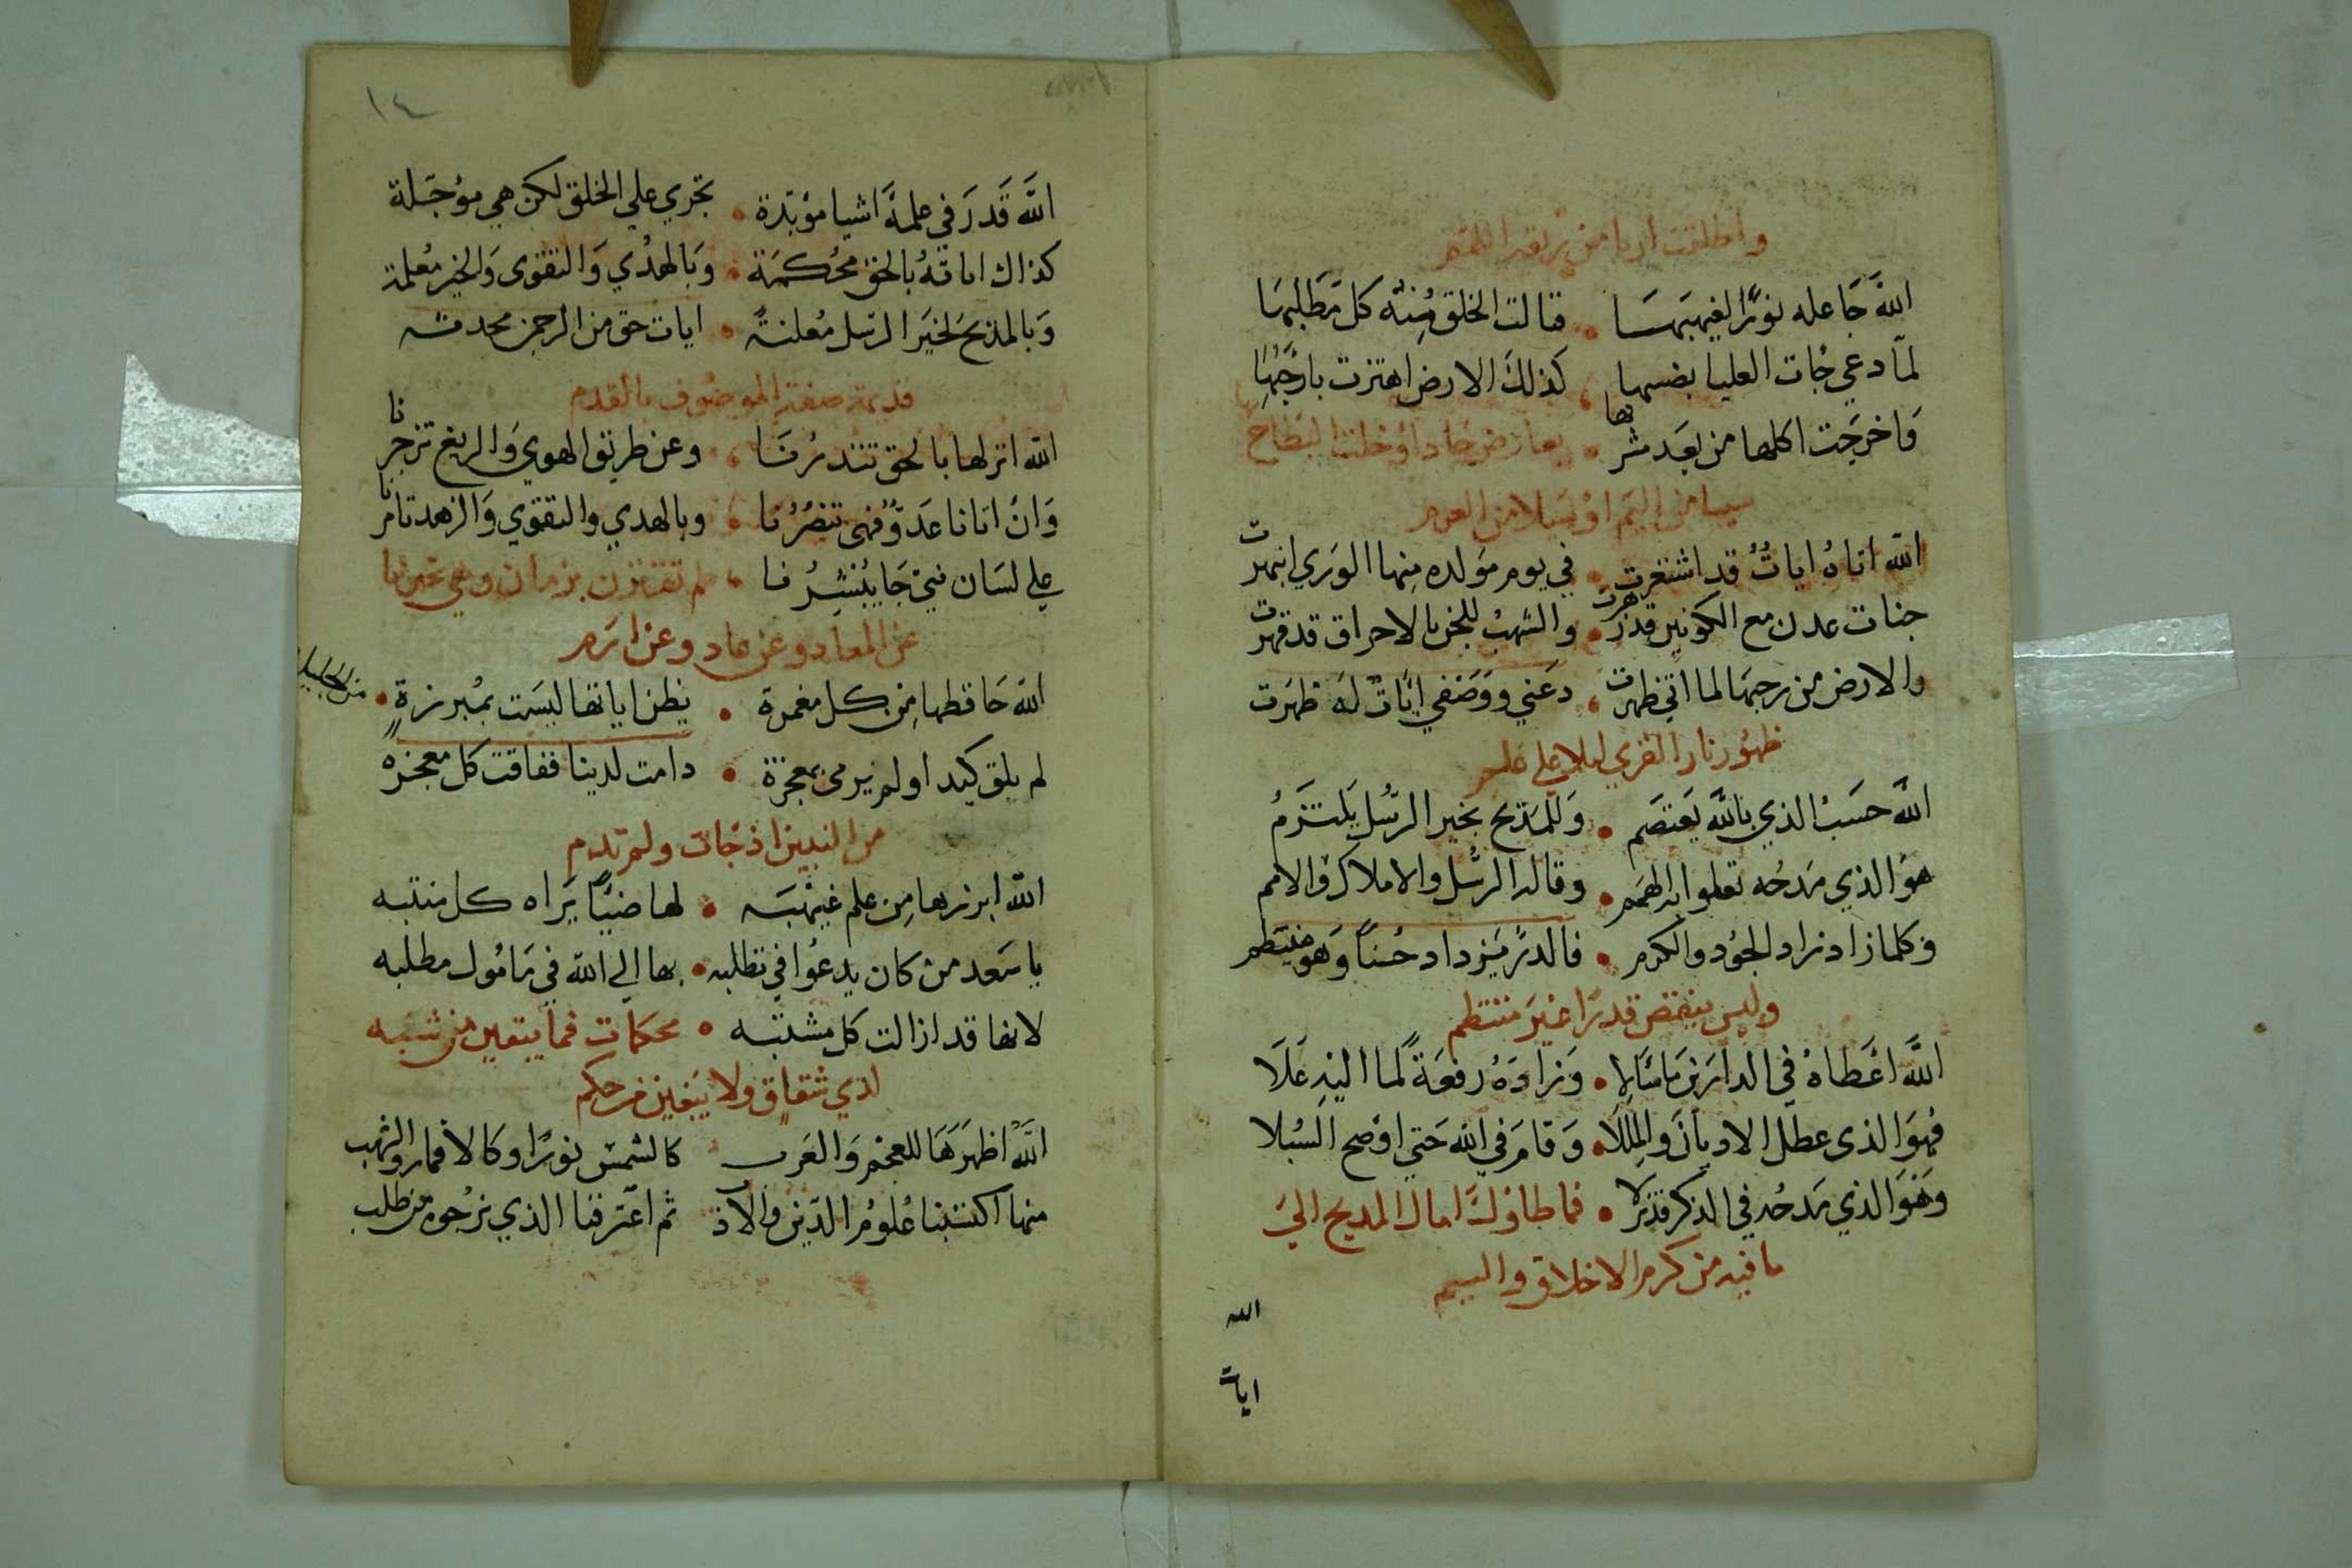 واطلقت اربا من ربقة اللمم
الله جاعله نورًا لغيهبها • فنالت الخلق منه كل مطلبها
لما دعي جات العليا بضبها • كذلك الارض اهتزت بارجبها
وَاخرجت اكلها من بعد مشربها • بعارض جاد اوخلت البطاح
سيبا من اليم اوسيلا من العرم
الله اتاهُ اياتٌ قد اشتهرت • في يوم مولده منها الوري انبهرت
جنات عدن مع الكونين قد زهرت • والشهبْ للجن بالاحراق قد قهرت
والارض من رجبها لما اتي ظهرت • دعني ووصفي اياتٌ له ظهرت
ظهور نار القري ليلا علي علم
اللَّه حسبْ الذي بالله يعتصم • وَللمَديح بخير الرسُل يَلتزمُ
هو الذي مدحُه تعلوا به الهمم • وقاله الرسُل والاملاك والامم
وكلما زاد زاد الجود والكرم • فالدر يزداد حُسناً وَهو منتظم
وليس ينقص قدرًا غيرَ منتظم
اللَّه اعَطاهُ في الدارين ماسَالا • وَزادهُ رفعَةً لما اليه عَلَا
فهوَ الذي عطل الاديانَ والمللا • وَقامَ في الله حَتي اوضح السُبلا
وَهوَ الذي مَدحُه في الذكر قد نزلا • فما تطاول امال المديح الي
ما فيه من كرم الاخلاق والشيم
الله
ايات
١٤
اللَّه قَدرَ في علمهِ اشيا مؤبّدة • تجري علي الخلق لكن هي مؤجّلة
كذاك اياتهُ بالحق محُكمَة • وَبالهدُي وَالتقوى وَالخير مُعلمة
وَبالمدَيح لخيَر الرسل مُعلنةً • ايات حق من الرحمن محدثه
قديمة صفة الموصُوف بالقدم
الله انزلها بالحق تنذرُنَا • وعن طريق الهوي وَالزيغ تزجرنا
وَانْ اتانا عَدوٌّ فهي تنصُرُنا • وبالهدي والتقوي وَالزهد تامرنا
علي لسَان نبيْ جَا يُبشِرُنا • لم تقترن بزمان وهي تخبرنا
عن المعاد وعن عاد وعن ارَم
الله حَافظها مِن كل مغمزة • يظن اياتها ليسَت بمُبرزةٍ •
لم يلق كيدا ولم يرمى بمعجزة • دامت لدينا ففاقت كل معجزه
من النبيين اذ جَات ولم تدم
الله ابرزها مِن علم غيهبَه • لها ضيًّا يَراه كل منتبه
يا سَعد من كان يدعُوا في تطلبه • بها الي الله في مامُول مطلبه
لانها قد ازالت كل مشتبه • محكمات فما يبقين من شبه
لذي شقاق ولا يَبغين من حكم
اللَّهُ اظهرَهَا للعجم وَالعَرب • كالشمس نورًا وكالاقمار والشهب
منها اكتسَبنا عُلومُ الدّين والادب ثم اعترفنا الذي نرجُوه من طلب